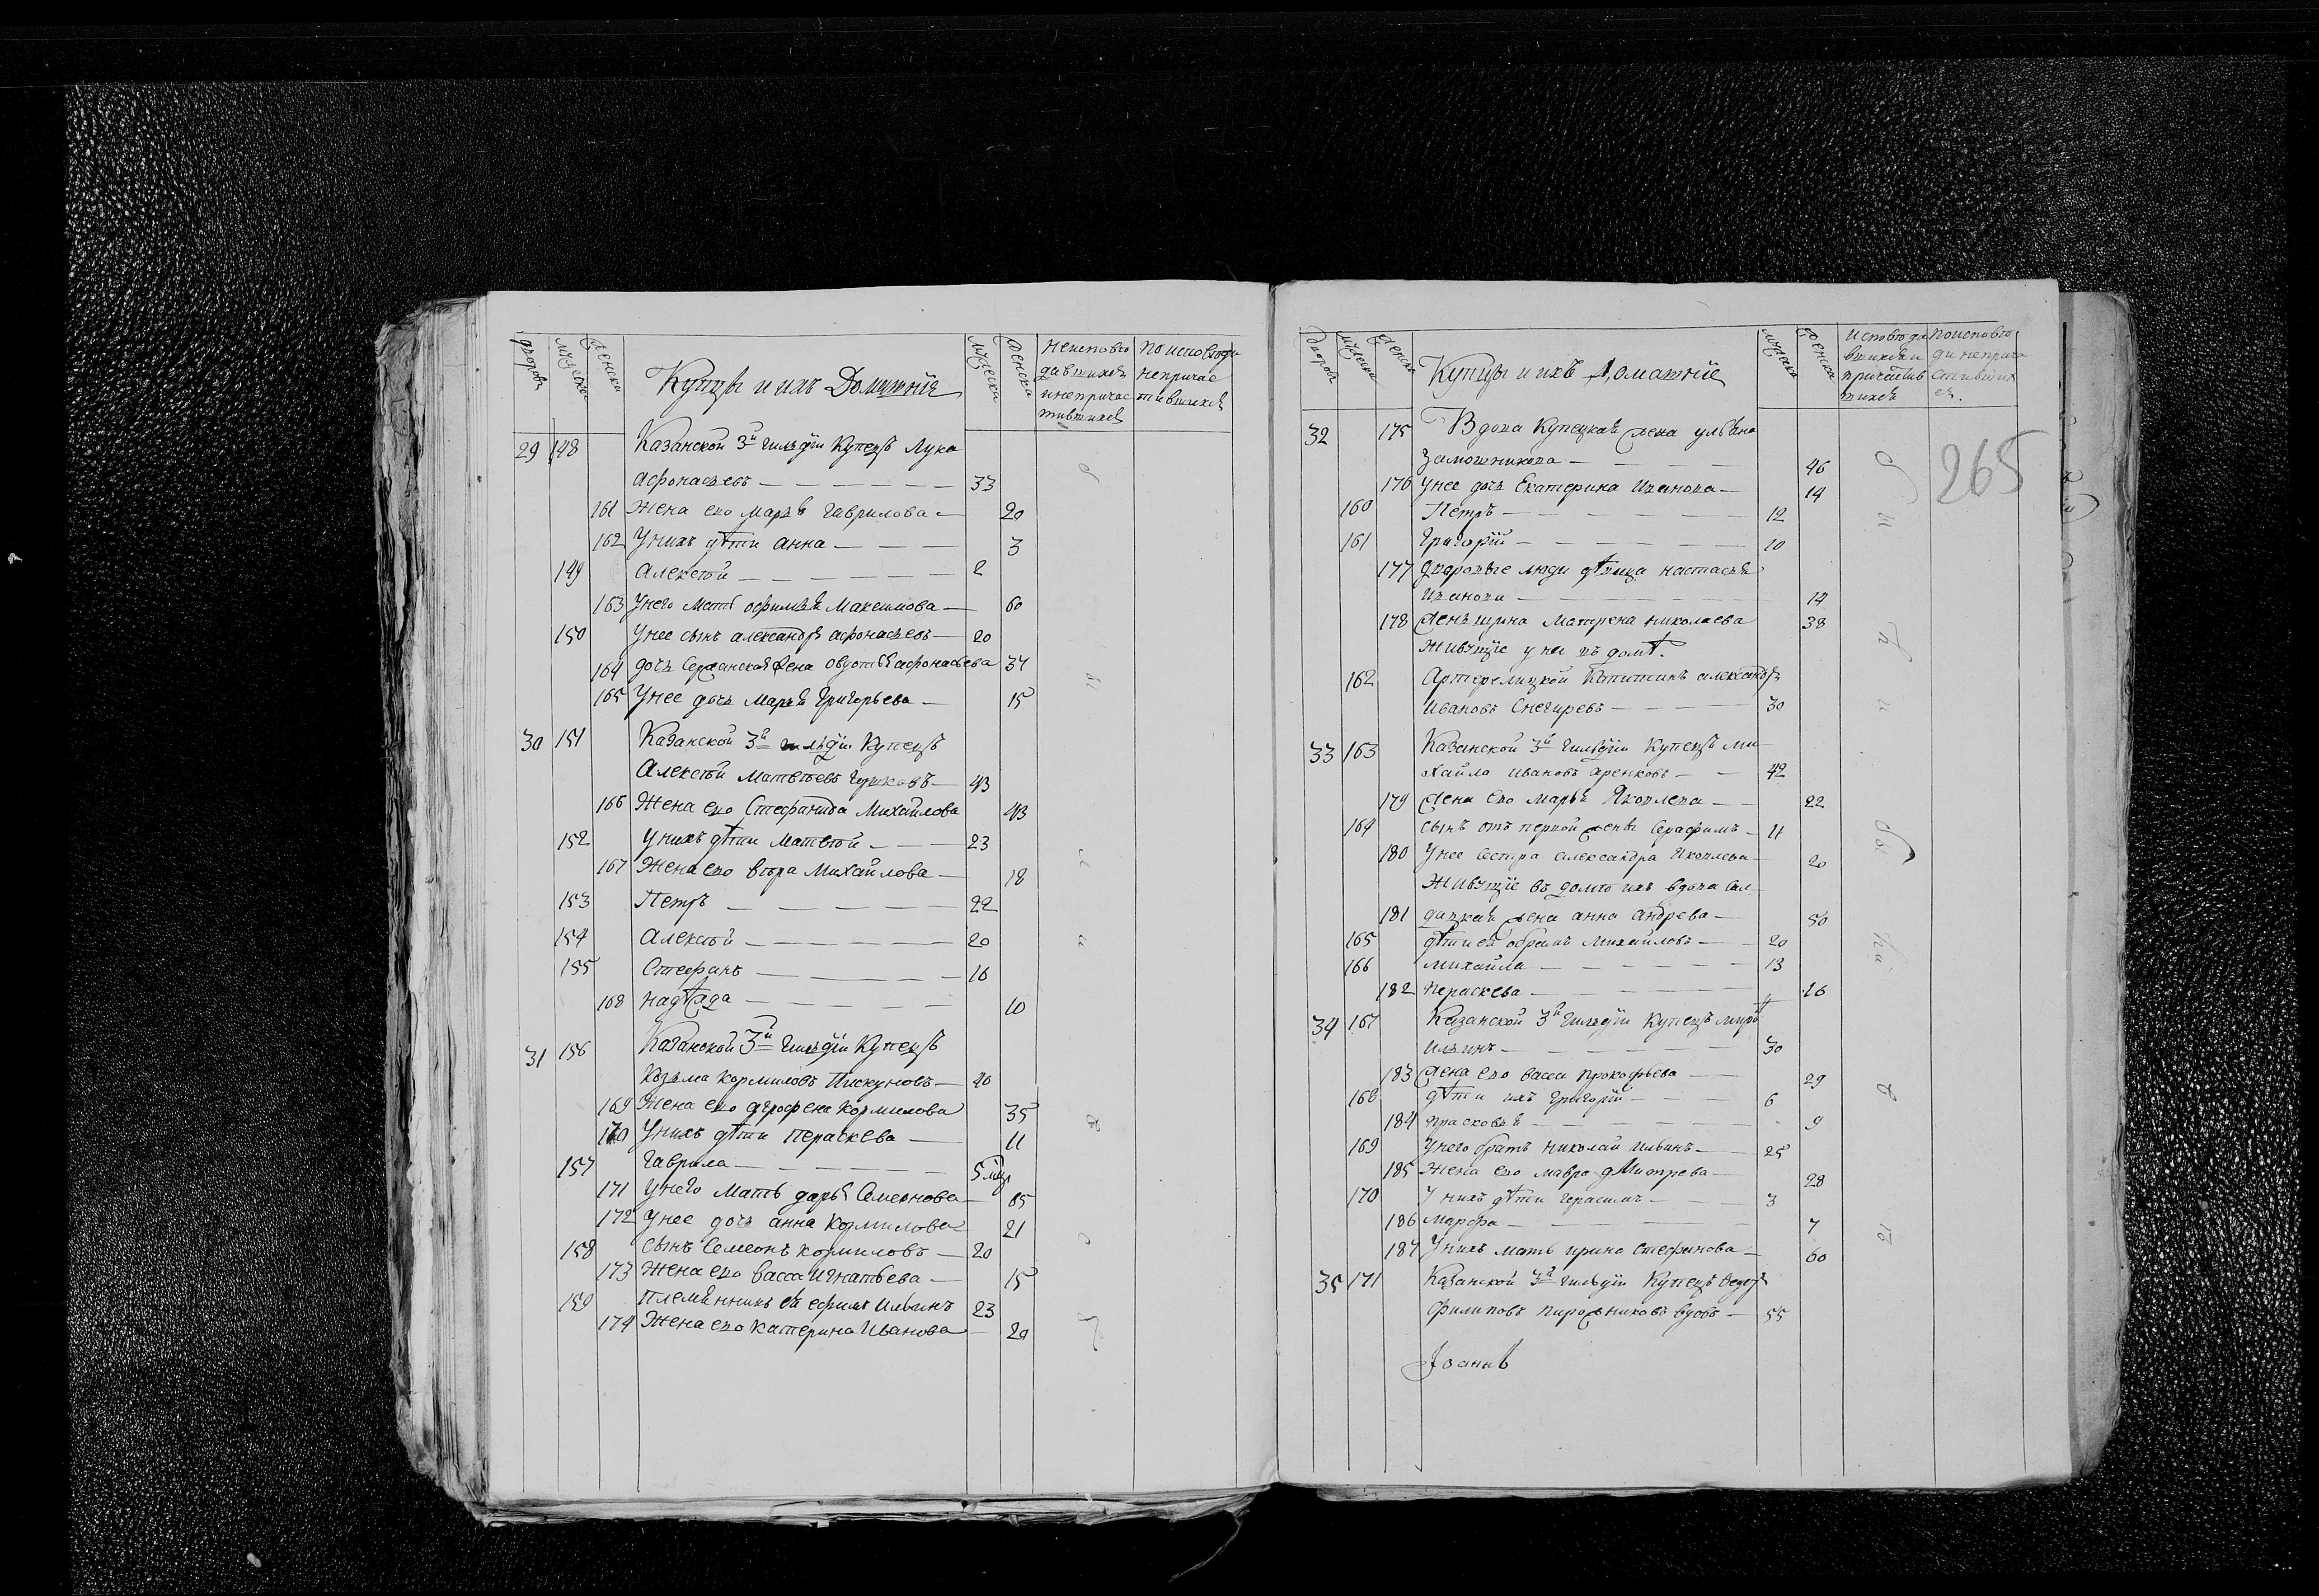 дворовъ мужеска женска Купцы и ихъ Домашнїя мужеска женска
неисповѣ
давшихся
инепричас
тившихся
по исповѣди
непричас
тившихся
29 148 Казанской 3й гильдїи Купецъ Лука
Афонасьевъ — 33
161 Жена его Марья Гаврилова — 20
162 Унихъ дѣти анна — 3
149 Алексѣй — 2
163 Унего мать Максимова — 60
150 Унее сынъ александръ афонасьевъ — 20
164 дочь жена афонасьева 34
165 Унее дочь Марья Григорьева — 15
30 151 Казанской 3й гильдїи Купецъ
Алексѣй Матвѣевъ — 43
166 Жена его Стефанида Михайлова 43
152 Унихъ дѣти Матвѣй — 23
167 Жена его вѣра Михайлова — 18
153 Петръ — 22
154 Алексѣй — 20
155 Стефанъ — 16
168 надѣжда — 10
31 156 Казанской 3й гильдїи Купецъ
Козьма Кормиловъ Пискуновъ — 40
169 Жена его Кормилова 35
170 Унихъ дѣти Параскева — 11
157 Гаврила — 5
171 Унего Мать дарья Семенова — 65
172 Унее дочь анна Кормилова 21
158 Сынъ Семеонъ кормиловъ — 20
173 Жена его васса Игнатьева — 15
159 Племянникъ ея ефимъ Ильинъ 23
174 Жена его Катерина Иванова — 20
дворовъ мужеска женска Купцы и ихъ Домашнїе мужеска женска
Исповѣда
вшихся и
причастив
шихся
поисповѣ
ди неприча
стившихъ
ся.
265
32 175 Вдова Купецкая жена ульяна
Замошникова — 46
176 Унее дочь Екатерина Иванова — 14
160 Петръ — 12
161 Григорїй — 10
177 Дворовые люди дѣвица настасья
Иванова — 14
178 Женьщина Матрена николаева 38
Живущїе у ни въ домѣ.
162 Капитанъ александръ
Ивановъ Снегиревъ — 30
33 163 Казанской 3й гильдїи Купецъ ми
хайло ивановъ — 42
179 жена его марья Яковлева — 22
164 сынъ отъ первой жены Серафимъ — 11
180 Унее Сестра александра Яковлева — 20
Живущїе въ домѣ ихъ вдова Сол
181 дацкая жена анна андрева — 50
165 дѣти ея Михайловъ — 20
166 михайла — 13
182 Параскева — 16
34 167 Казанской 3й гильдїи Купецъ
Ильинъ — 30
183 жена его васса прокофьева — 29
168 дѣти ихъ Григорїй — 6
184 прасковья — 9
169 Унего братъ николай ильинъ — 25
185 Жена его мавра дмитрева — 28
170 Унихъ дѣти Герасимъ — 3
186 Марфа — 7
187 Унихъ мать ирина стефанова — 60
35 171 Казанской 3й гильдїи Купецъ Ѳедоръ
филиповъ пирожниковъ вдовъ — 55
Іоаннъ